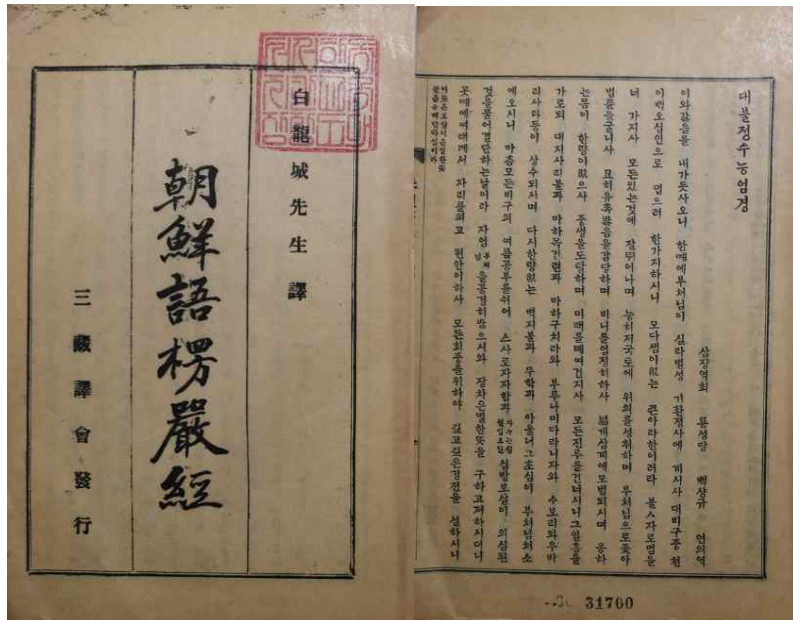 白龍城先生譯
朝鮮語楞嚴經
三藏譯會發行
대불정수능엄경
삼장역회 룡성당 백상규 언의역
이와갓음을 내가듯사오니 한때에부처님이 실라벌성 기환정사에 게시사 대비구중 천
이백오십인으로 덥으러 한가지하시니 모다샘이없는 큰아라한이러라 불ㅅ자로법을
너 가지사 모든있는것에 잘뛰어나며 능히저국토에 위의를성취하며 부처님으로좇아
법륜을굴니사 묘히유촉을 감당하며 비니를엄정히하사 넓게삼계에모범되시며 응하
는몸이 한량이없으사 중생을도탈하며 미래를빼여건지사 모든진루를건너시니그일홈을
가로되 대지사리불과 마하목건련과 마하구치라와 부루나미다라니자와 수보리와우바
리사타등이 상수되시며 다시한량없는 벽지불과 무학과 아울너그초심이 부처님처소
에오시니 마츰모든비구의 여름공부를쉬여 스사로자자함과 십방보살이 의심된
것을물어결단하는날이라 자엄 을공경히받으시와 장차은밀한뜻을 구하고저하시더니
곳때에여래께서 자리를펴고 편안이하사 모든회중을위하야 깊고깊은경전을 설하시니
31700